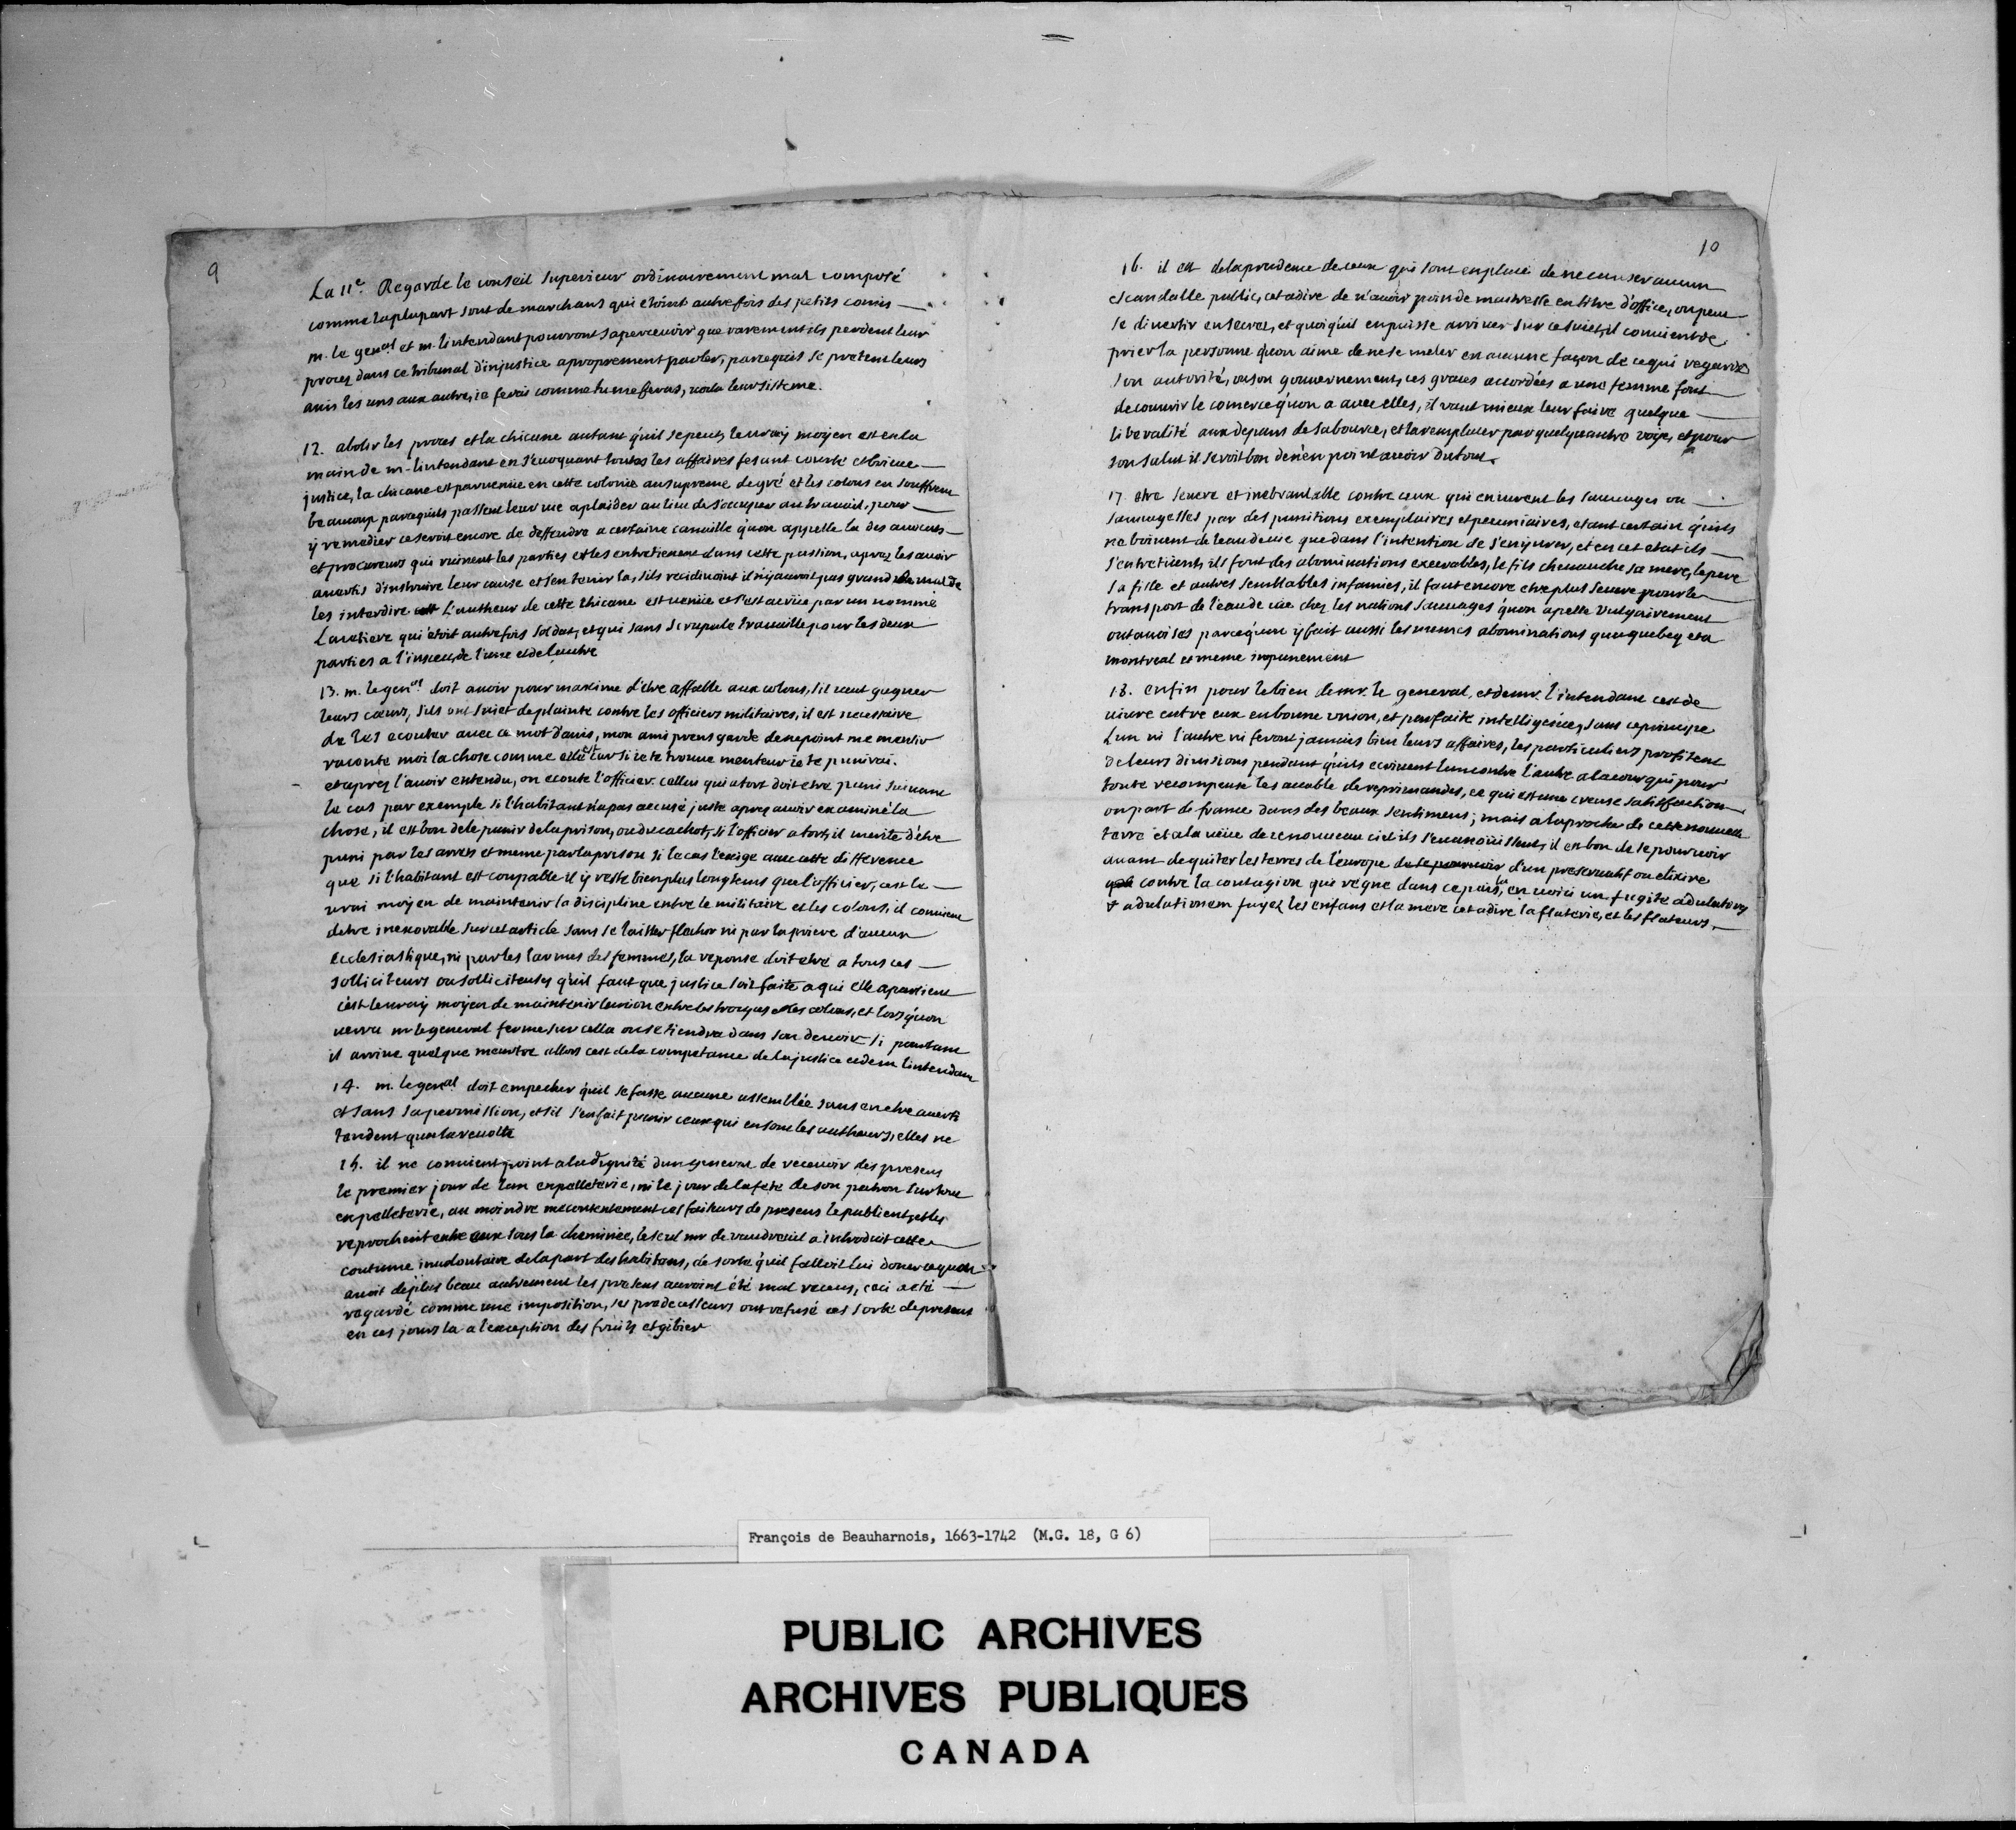 9
La 11e. Regarde le conseil superieur ordinairement mal composé
comme la plupart sont de marchans qui etoint autrefois des petits comis
m. le genal et m. lintendant pouront sapercevoir que rarement ils perdent leur
procez dans ce tribunal d'injustice a proprement parler, parcequils se pretent leurs
amis les uns aux autres, ie ferai comme tu me fferas, voila leur sisteme.
12. abolir les proces et la chicane autant quil se peut, le vray moyen est en la
main de m. lintendant en s'evoquant toutes les affaires fesant courte et brieue
justice, la chicane est parvenüe en cette colonie au supreme degré et les colons en souffrent
beaucoup parcequils passent leur vie a plaider au lieu de s'occuper au travail, pour
y remedier ce seroit encore de deffendre a certaine canaille quon appelle la des avocats
et procureurs qui ruinent les parties et les entretienent dans cette passion, aprez les avoir
avertis d'instruire leur cause et s'en tenir la, sils recidivoint il n'y auroit pas grand mal de
les interdire L'autheur de cette chicane est venüe et s'est acrüe par un nommé
Lauriere qui étoit autrefois soldat, et qui sans scrupule travaille pour les deux
parties a l'insceu de l'une et de l'autre
13. m. le genal doit avoir pour maxime d'etre affable aux colons, s'il veut gagner
leurs cœurs, sils ont sujet de plainte contre les officiers militaires, il est necessaire
de les ecouter avec ce mot d'avis, mon ami prens garde de ne point me mentir
raconte moi la chose comme elle est car si ie te trouve menteur ie te punirai.
et aprez l'avoir entendu, on ecoute l'officier. cellui qui a tort doit etre puni suivant
le cas par exemple si l'habitant n'a pas accusé juste aprez avoir examiné la
chose, il est bon de le punir de la prison, ou du cachot, si l'officier a tort, il merite d'être
puni par les arrets et meme par la prison si le cas l'exige avec cette difference
que si l'habitant est coupable il y reste bien plus longtems que l'officier, cest le
vrai moyen de maintenir la discipline entre le militaire et les colons, il convient
detre inexorable sur cet article sans se laisser flechir ni par la priere d'aucun
Ecclesiastique, ni par les larmes des femmes, la reponse doit etre a tous ces
solliciteurs ou solliciteuses quil faut que justice soit faite a qui elle apartient
cest le vray moyen de maintenir lunion entre les troupes et les colons, et lors quon
verra m. le general ferme sur cella on se tiendra dans son devoir. si pourtant
il arrive quelque meurtre allors cest de la competance de la justice et de m. lintendant
14. m. le genal doit empecher quil se fasse aucune assemblée sans en etre averti
et sans sa permission, et sil s'en fait punir ceux qui en sont les autheurs, elles ne
tendent qua la revolte
15. il ne convient point a la dignité dun general de recevoir des presens
le premier jour de lan en pelleterie, ni le jour de la fete de son patron surtout
en pelleterie, au moindre mecontentement ces faiseurs de presens le publient, et les
reprochent entre eux sous la cheminée, le seul mr. de vaudreuil a introduit cette
coutume involontaire de la part des habitans, de sorte qu'il falloit lui donner ce quon
avoit de plus beau autrement les presens auroint été mal receus, ceci a eté
regardé comme une imposition, ses predecesseurs ont refusé ces sorte de presens
en ces jours la a lexception des fruits et gibier
10
16. il est de la prudence de ceux qui sont en place de ne causer aucun
escandalle public, cet adire de n'avoir poin de maitresse en titre d'office, on peut
se divertir en secret, et quoi quil en puisse arriver sur ce sujet, il convient de
prier la personne quon aime de ne se meler en aucune façon de ce qui regarde
son autorité, ou son gouvernement, ces graces accordées a une femme font
decouvrir le comerce quon a avec elles, il vaut mieux leur faire quelque
liberalité aux depans de sa bource, et la remplacer par quelque autre voye, et pour
son salut il seroit bon de n'en point avoir du tout.
17. etre severe et inebranlable contre ceux qui enivrent les sauvages ou
sauvagesses par des punitions exemplaires et pecuniaires, etant certain quils
ne boivent de leau de vie que dans l'intention de s'enyvrer, et en cet etat ils
s'entretuent, ils font des abominations execrables, le fils chevauche sa mere, le pere
sa fille et autres semblables infamies, il faut encore etre plus severe pour le
transport de l'eau de vie chez les nations sauvages quon apelle vulgairement
outaoises parcequon y fait aussi les memes abominations qua quebeq et a
montreal et meme impunement
18. enfin pour le bien de mr. le general, et de mr. l'intendant cest de
vivre entre eux en bonne union, et parfaite intelligence, sans ce principe
L'un ni l'autre ni feront jamais bien leurs affaires, les particuliers profitent
de leurs divisions pendant quils ecrivent lun contre l'autre a la cour qui pour
toute recompense les accable de reprimandes, ce qui est une creuse satisfaction
on part de france dans des beaux sentimens; mais a laproche de cette nouvelle
terre et a la vüe de ce nouveau ciel ils s'evanoüissent, il est bon de se pourvoir
avant de quiter les terres de l'europe de se pourvoir d'un preservatif ou elixire
contre la contagion qui regne dans ce païs la, en voici un fugite adulatores
& adulationem fuyez les enfans et la mere cet adire la flaterie, et les flateurs.
François de Beauharnois, 1663-1742 (M.G. 18, G 6)
PUBLIC ARCHIVES
ARCHIVES PUBLIQUES
CANADA